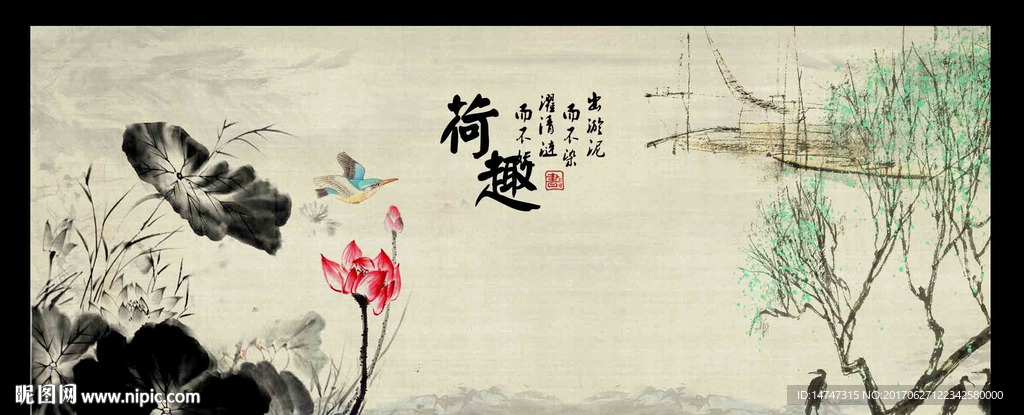 荷趣
出淤泥
而不染
濯清涟
而不
昵图网 www.nipic.com
ID:14747315 NO:20170627122342580000